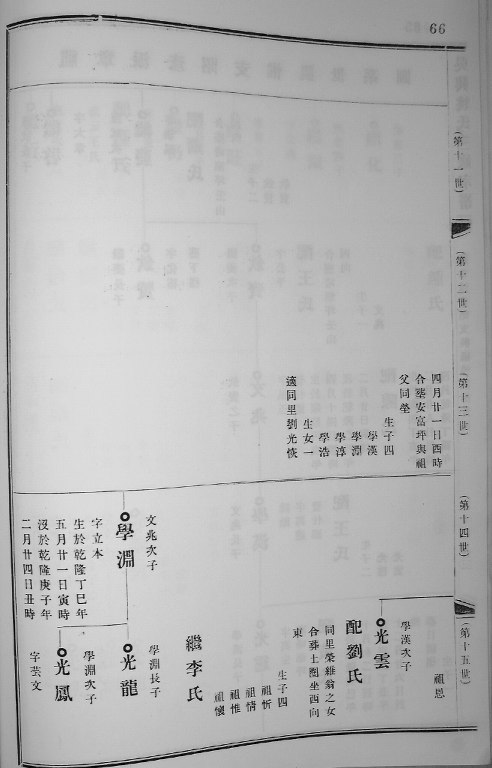 66
(第十一世)
(第十二世)
(第十三世)
(第十四世)
(第十五世)
四月廿一日酉時
合塟安富坪與祖
父同塋
生子四
學漢
學淵
學淳
學浩
生女一
適同里劉光恢
祖恩
學漢次子
光雲
配劉氏
同里榮維翁之女
合葬土圍坐西向
東
生子四
祖忻
祖情
祖惟
祖懷
繼李氏
文兆次子
學淵
字立本
生於乾隆丁巳年
五月廿一日寅時
沒於乾隆庚子年
二月廿四日丑時
學淵長子
光龍
學淵次子
光鳳
字芸文